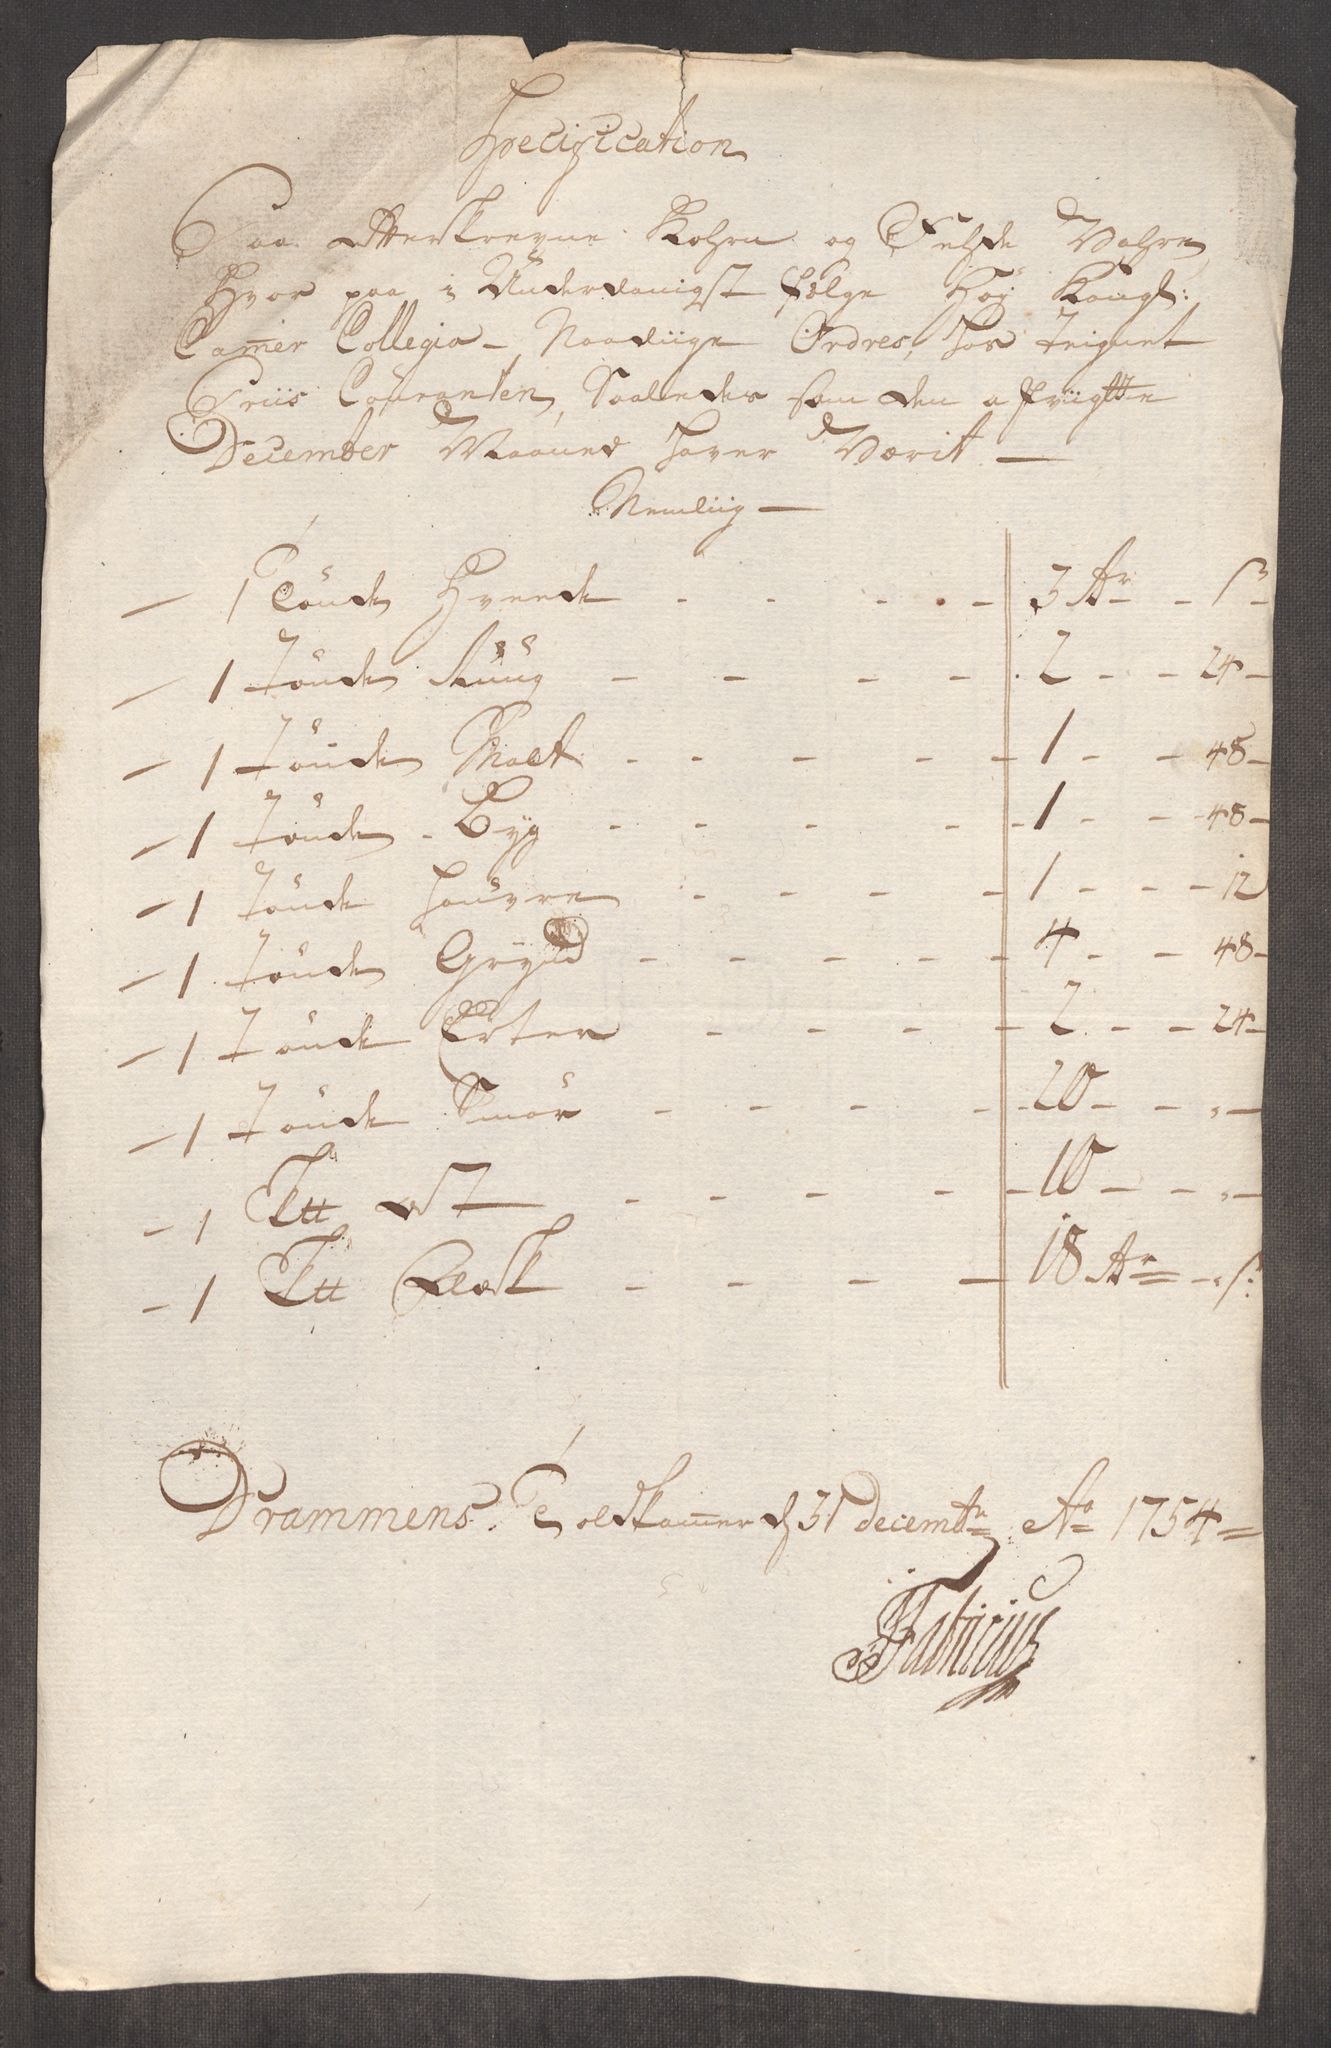 Specification
Paa Efterskrevne Kohrn og Fehde Vahre,
Hvor paa i Underdanigst følge Høy Kongl:
Camer Collegia Naadiige Ordres, hos teignet
Priis Couranten, Saaledes som den afviigtte
December Maaned haver Værit —
Nemliig —
— 1 Tønde Hveede - - - - - 3 Rr - - s
— 1 Tønde Rüüg - - - - 2 - - 24 -
— 1 Tønde Malt - - - - - 1 - - 48 -
— 1 Tønde Byg - - - - - 1 - - - 48 -
— 1 Tønde haüvre - - - - 1 - - - 12
— 1 Tønde Gryn - - - - - 4 - - 48 -
— 1 Tønde Erter - - - - 2 - - 24 -
— 1 Tønde Smør - - - - - 20 - - „ -
— 1 Sktt ost - - - - - 10 - - „ -
— 1 Sktt Flæsk - - - - 18 Rr - „ s:
Drammens Toldkammer d 31 decembr Ao 1754 =
Fabricius